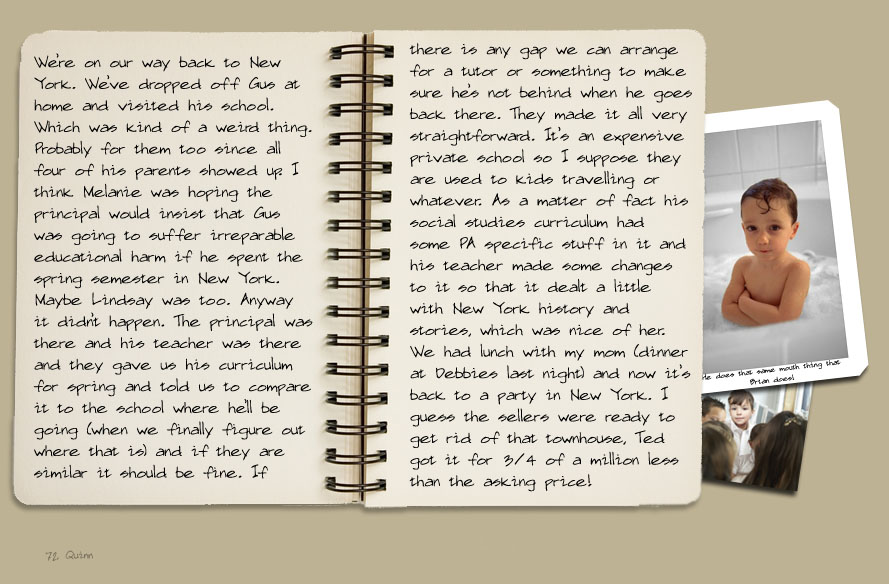 We're on our way back to New
York. We've dropped off Gus at
home and visited his school.
Which was kind of a weird thing.
Probably for them too since all
four of his parents showed up I
think Melanie was hoping the
principal would insist that Gus
was going to suffer irreparable
educational harm if he spent the
spring semester in New York.
Maybe Lindsay was too. Anyway
it didn't happen. The principal was
there and his teacher was there
and they gave us his curriculum
for spring and told us to compare
it to the school where he'll be
going (when we finally figure out
where that is) and if they are
similar it should be fine. If
there is any gap we can arrange
for a tutor or something to make
sure he's not behind when he goes
back there. They made it all very
straightforward. It's an expensive
private school so I suppose they
are used to kids travelling or
whatever. As a matter of fact his
social studies curriculum had
some PA specific stuff in it and
his teacher made some changes
to it so that it dealt a little
with New York history and
stories, which was nice of her.
We had lunch with my mom (dinner
at Debbies last night) and now it's
back to a party in New York. I
guess the sellers were ready to
get rid of that townhouse, Ted
got it for 3/4 of a million less
than the asking price!
He does that same mouth thing that
Brian does!
72 Quinn